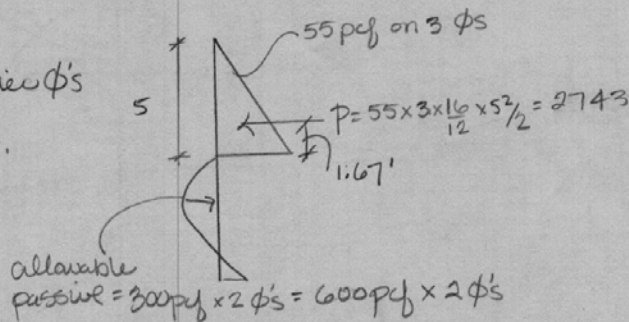 55 pcf on 3 ϕs
ϕ's
5
P = 55 x 3 x 16/12 x 5²/2 = 2743
1.67'
allowable
passive = 300pcf x 2 ϕ's = 600pcf x 2 ϕ's